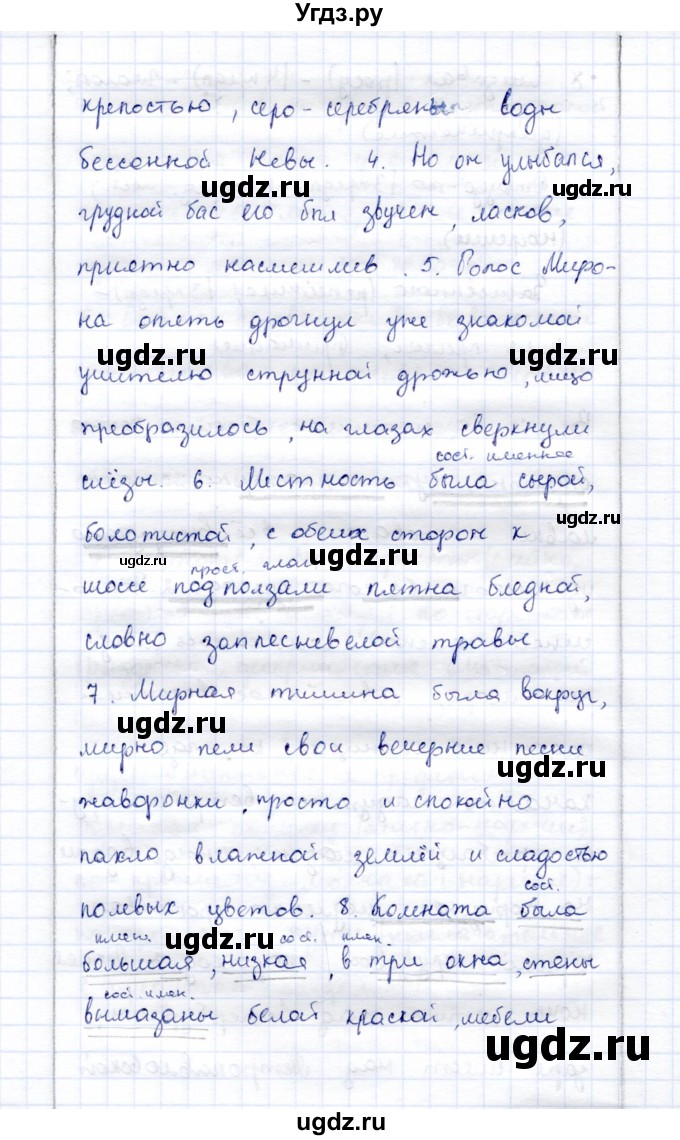 Угдз.ру
крепостью, серо-серебряны воды
бессонной Невы. 4. Но он улыбался,
ugdz.ru ugdz.ru
грудной бас его был звучен, ласков,
приятно насмешлив. 5. Голос Миро-
на опять дрогнул уже знакомой
ugdz.ru ugdz.ru
учителю струнной дрожью, лицо
преобразилось, на глазах сверкнули
сост. именное
слёзы. 6. Местность была сырой,
ugdz.ru
болотистой, с обеих сторон к
ugdz.ru прост. глаг
шоссе подползали пятна бледной,
словно заплесневелой травы
7. Мирная тишина была вокруг,
ugdz.ru
мирно пели свои вечерние песни
ugdz.ru
жаворонки, просто и спокойно
пахло влажной землёй и сладостью
сост.
полевых цветов. 8. Комната была
имен. ugdz.ru сост. имен.
большая, низкая, в три окна, стены
сост. имен.
вымазаны белой краской, мебели
ugdz.ru
ugdz.ru